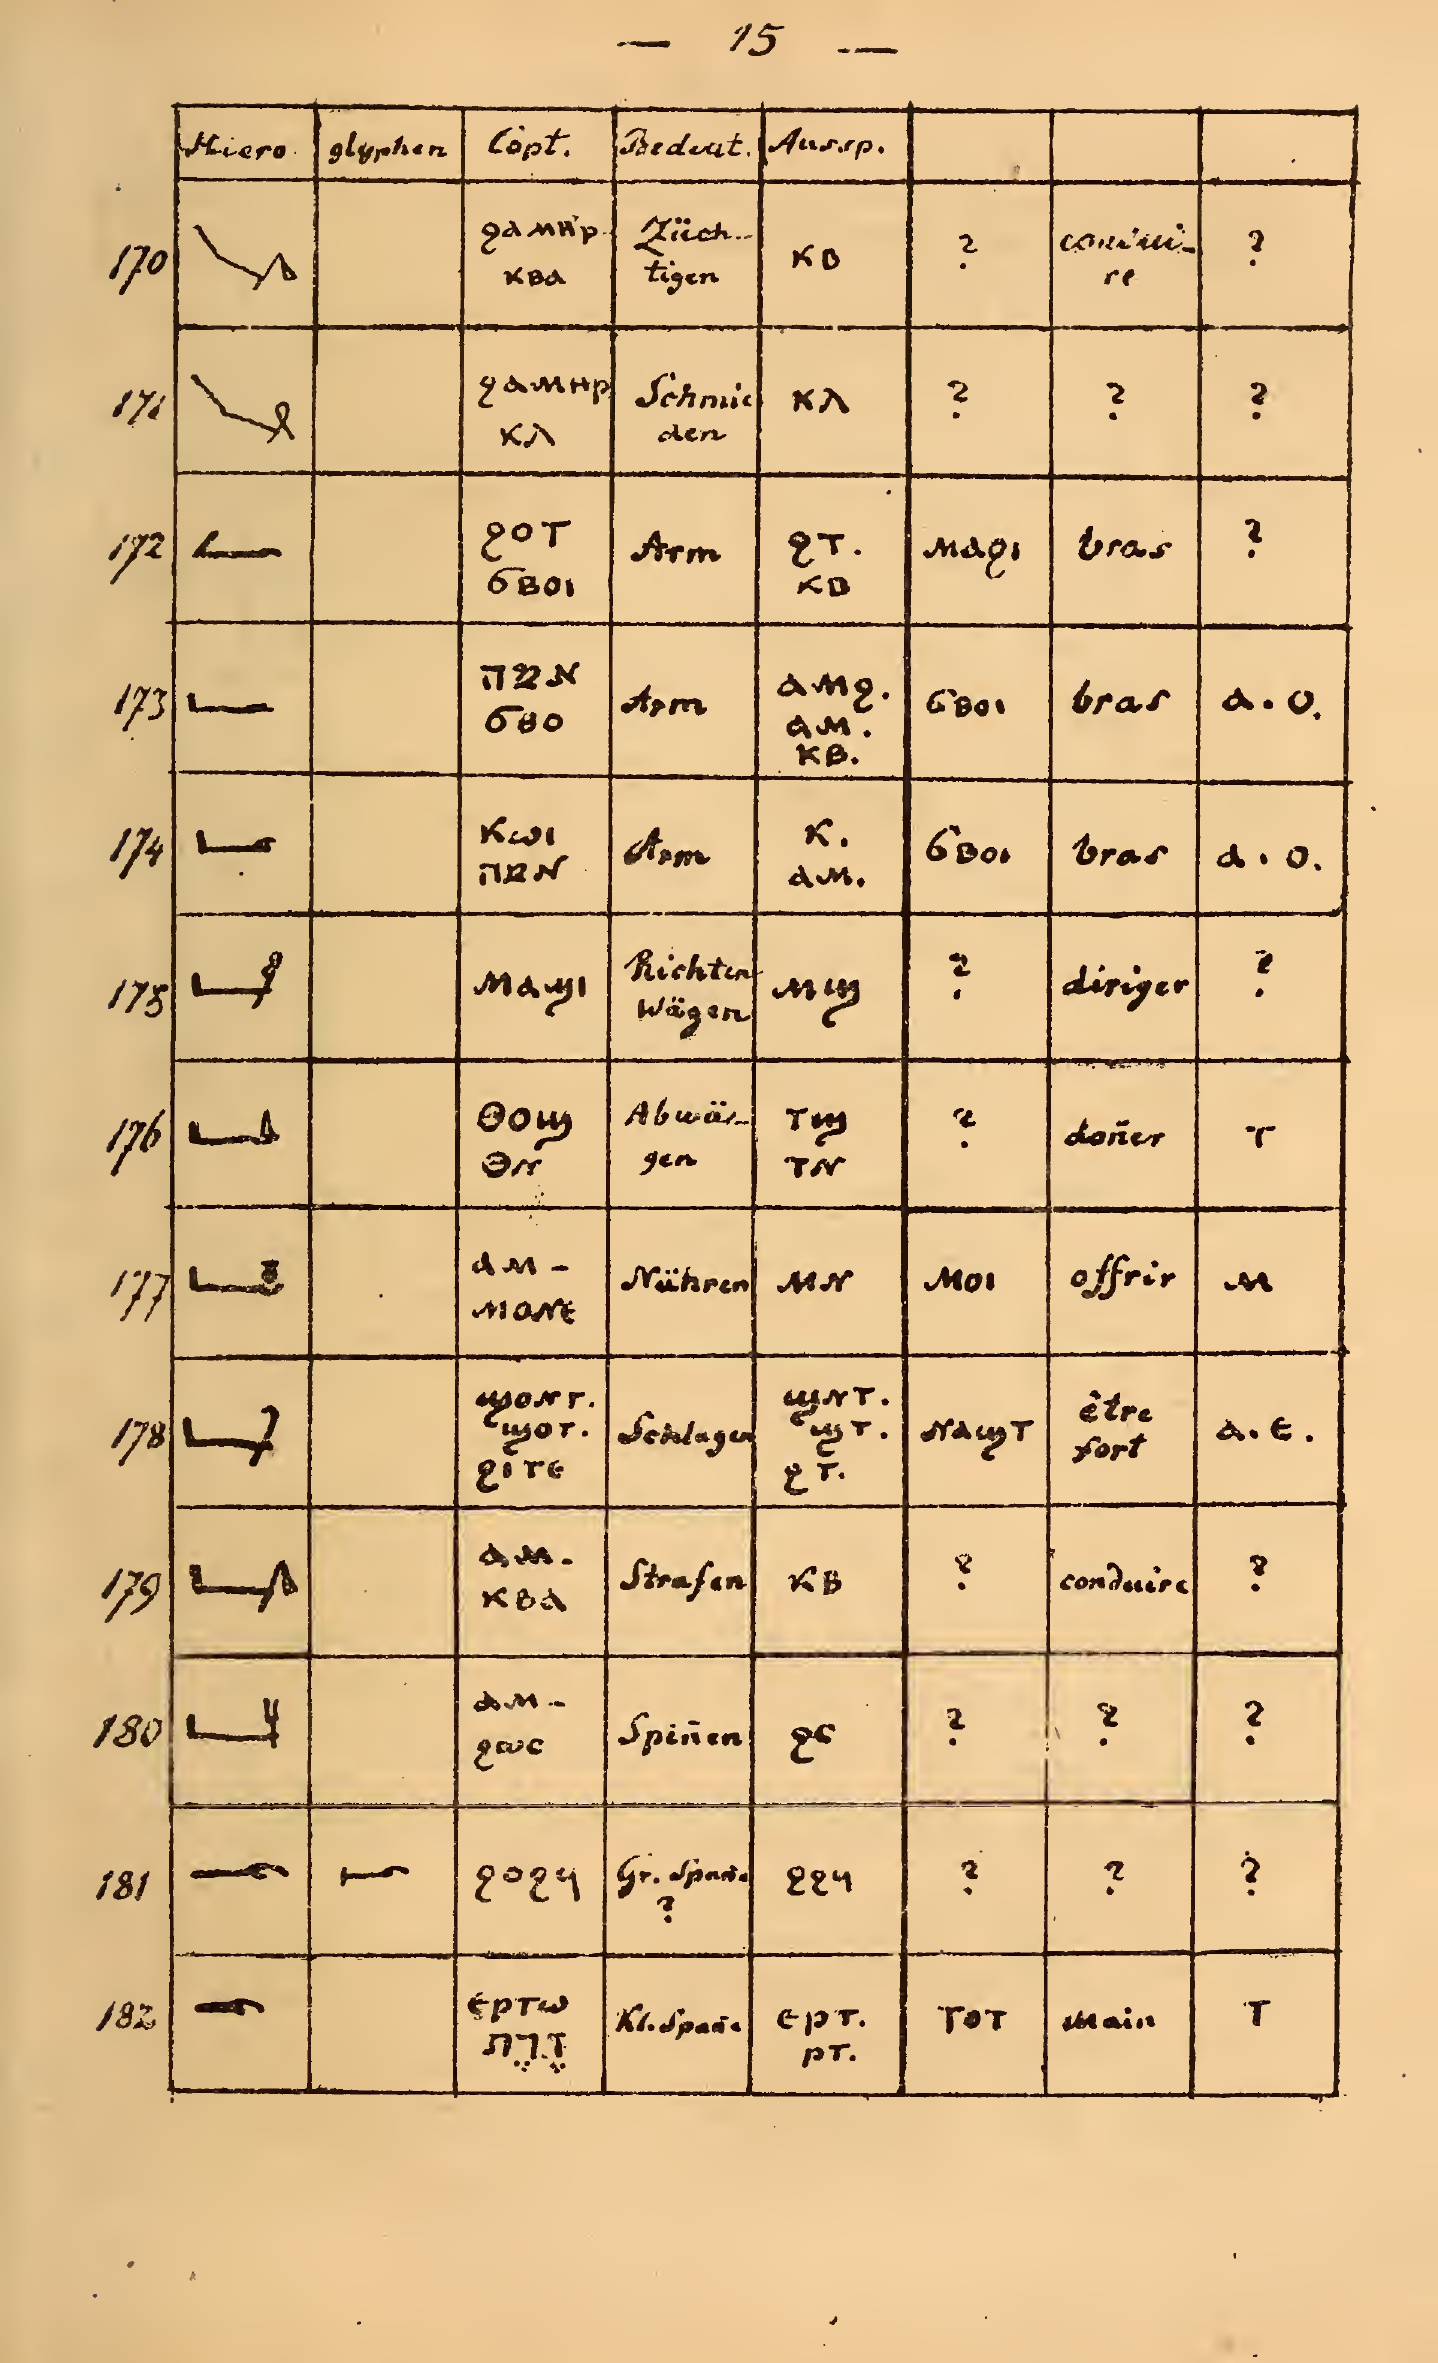 — 15 —
Hiero glyphen Copt. Bedeut. Aussp.
170 ϩⲁⲙⲏⲣ ⲕⲃⲁ Züch- tigen ⲕⲃ ? condui- re ?
171 ϩⲁⲙⲏⲣ ⲕⲗ Schmie den ⲕⲗ ? ? ?
172 ϩⲟⲧ ϭⲃⲟⲓ Arm ϩⲧ. ⲕⲃ ⲙⲁϩⲓ bras ?
173 אמה ϭⲃⲟ Arm ⲁⲙϩ. ⲁⲙ. ⲕⲃ. ϭⲃⲟⲓ bras ⲁ. ⲟ.
174 ⲕⲱⲓ אמה Arm ⲕ. ⲁⲙ. ϭⲃⲟⲓ bras ⲁ. ⲟ.
175 ⲙⲁϣⲓ Richten Wägen ⲙϣ ? diriger ?
176 ⲑⲟϣ ⲑⲛ Abwä- gen ⲧϣ ⲧⲛ ? don̄er ⲧ
177 ⲁⲙ- ⲙⲟⲛⲉ Nähren ⲙⲛ ⲙⲟⲓ offrir ⲙ
178 ϣⲟⲛⲧ. ϣⲟⲧ. ϩⲓⲧⲉ Schlagen ϣⲛⲧ. ϣⲧ. ϩⲧ. ⲛⲁϣⲧ être fort ⲁ. ⲉ.
179 ⲁⲙ- ⲕⲃⲁ Strafen ⲕⲃ ? conduire ?
180 ⲁⲙ- ϩⲱⲥ Spin̄en ϩⲥ ? ? ?
181 ϩⲟϩϥ Gr. Span̄e ? ϩϩϥ ? ? ?
182 ⲉⲣⲧⲱ זֶרֶת Kl. Span̄e ⲉⲣⲧ. ⲣⲧ. ⲧⲟⲧ main ⲧ